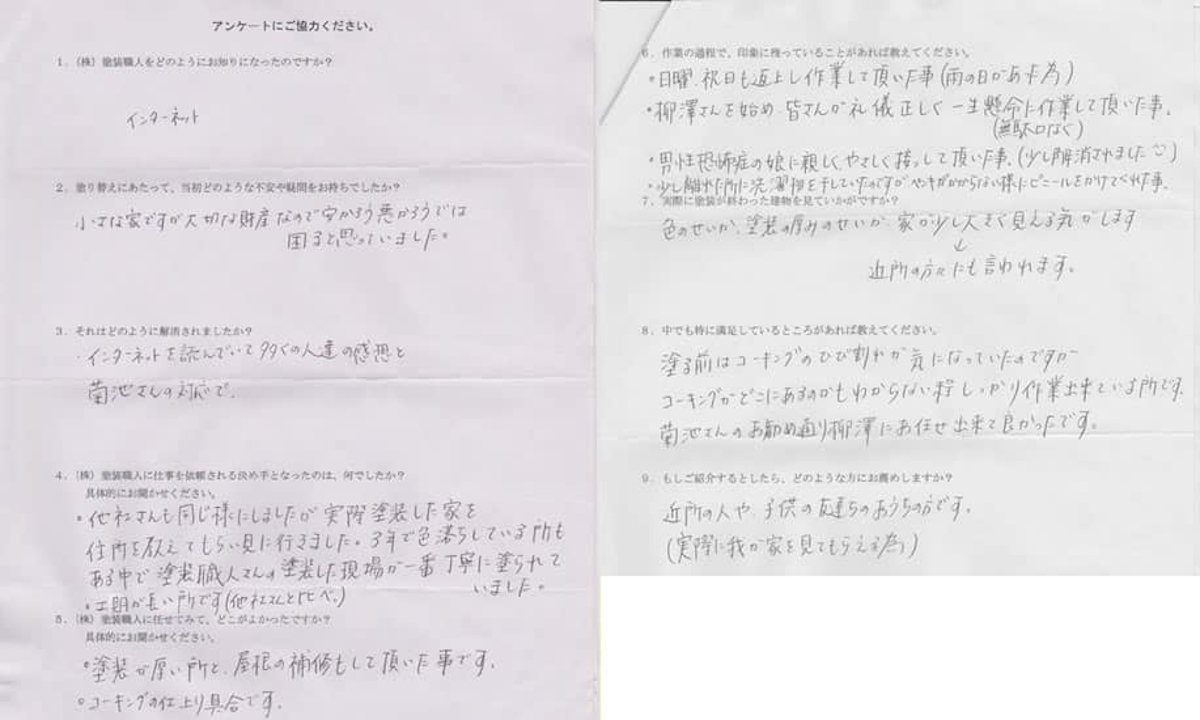 アンケートにご協力ください。
1．（株）塗装職人をどのようにお知りになったのですか？
インターネット
2．塗り替えにあたって、当初どのような不安や疑問をお持ちでしたか？
小さな家ですが大切な財産なので安かろう悪かろうでは
困ると思っていました。
3．それはどのように解消されましたか？
・インターネットを読んでいて多くの人達の感想と
菊池さんの対応で。
4．（株）塗装職人に仕事を依頼される決め手となったのは、何でしたか？
具体的にお聞かせください。
・他社さんも同じ様にしましたが実際塗装した家を
住所を教えてもらい見に行きました。3年で色落ちしている所も
ある中で塗装職人さんの塗装した現場が一番丁寧に塗られて
いました。
・工期が長い所です(他社さんと比べ。)
5．（株）塗装職人に任せてみて、どこがよかったですか？
具体的にお聞かせください。
・塗装が厚い所と、屋根の補修もして頂いた事です。
・コーキングの仕上り具合です。
6．作業の過程で、印象に残っていることがあれば教えてください。
・日曜、祝日も返上し作業して頂いた事(雨の日があった為)
・柳澤さんを始め、皆さんが礼儀正しく一生懸命に作業して頂いた事。
(無駄口なく)
・男性恐怖症の娘に親しくやさしく接っして頂いた事。(少し解消されました)
・少し離れた所に洗濯物を干していたのですがペンキがかからない様にビニールをかけてくれた事。
7．実際に塗装が終わった建物を見ていかがですか？
色のせいか、塗装の厚みのせいか、家が少し大きく見える気がします
↓
近所の方々にも言われます。
8．中でも特に満足しているところがあれば教えてください。
塗る前はコーキングのひび割れが気になっていたのですが
コーキングがどこにあるのかもわからない程しっかり作業出来ている所です。
菊池さんのお勧め通り柳澤にお任せ出来て良かったです。
9．もしご紹介するとしたら、どのような方にお薦めしますか？
近所の人や、子供の友達のおうちの方です。
(実際に我が家を見てもらえる為)